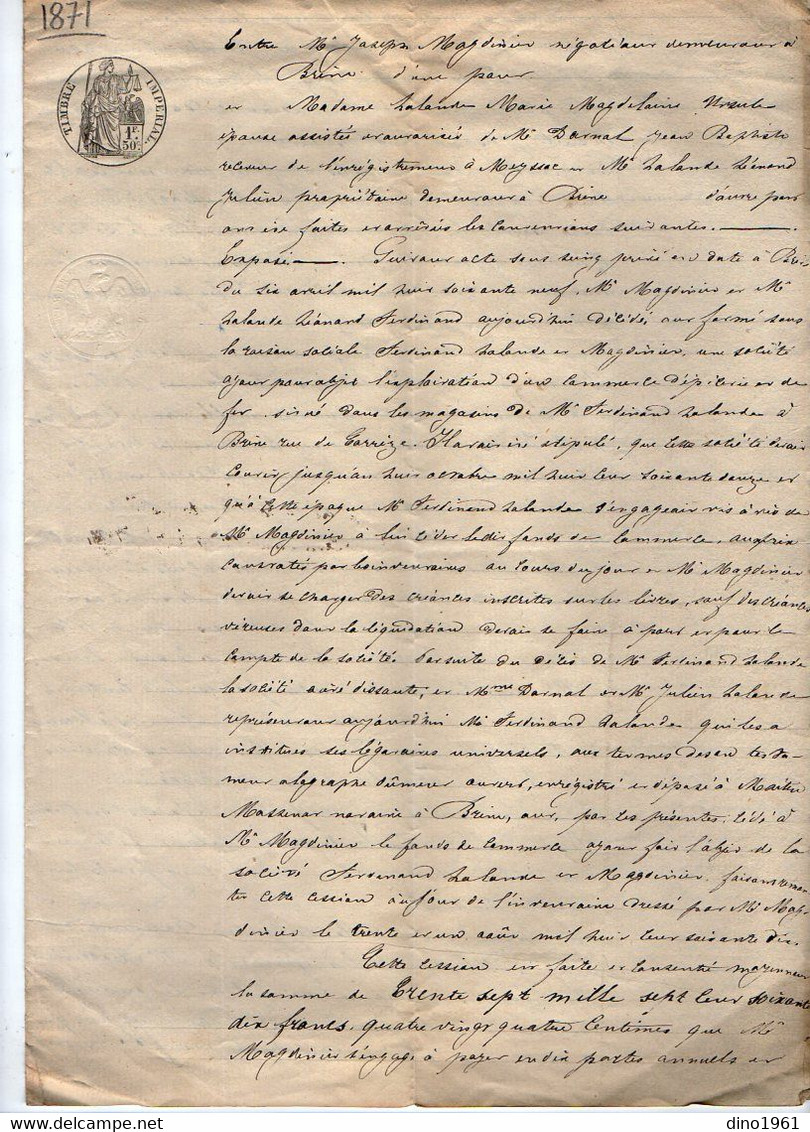 1871
TIMBRE IMPERIAL
1F.
50c.
Entre Mr Joseph Magdinier négociant demeurant à
Brive d'une part
et Madame Lalande Marie Magdelaine Ursule
épouse assistée et autorisée de Mr Darnal Jean Baptiste
receveur de l'enrégistrement à Meyssac et Mr Lalande Léonard
Julien propriétaire demeurant à Brive d'autre part
ont été faites et arrêtées les conventions suivantes.
Exposé. Suivant acte sous seing privé en date à
du six avril mil huit soixante neuf, Mr Magdinier et Mr
Lalande Léonard Ferdinand aujourd'hui décédé, ont formé sous
la raison sociale Ferdinand Lalande et Magdinier, une société
ayant pour objet l'exploitation d'un commerce d'épicerie et de
fer, situé dans les magasins de Mr Ferdinand Lalande à
Brive rue de Corrèze. Il avait été stipulé, que cette société devait
courir jusqu'au huit octobre mil huit cent soixante douze et
qu'à cette époque Mr Ferdinand Lalande s'engageait vis à vis de
Mr Magdinier à lui céder ledit fonds de commerce, au prix
constaté par les inventaires au cours du jour et Mr Magdinier
devait se charger des créances inscrites sur les livres, sauf des créances
véreuses dont la liquidation devait se faire à part et pour le
compte de la société. Par suite du décès de Mr Ferdinand Lalande
la société a été dissoute, et Mme Darnal et Mr Julien Lalande
représentent aujourd'hui Mr Ferdinand Lalande qui les a
institués ses légataires universels, aux termes de son testa-
ment olographe dûment ouvert, enrégistré et déposé à Maître
Massenat notaire à Brive, ont, par ces présentes, cédé à
Mr Magdinier le fonds de commerce ayant fait l'objet de la
société Ferdinand Lalande et Magdinier, faisant remon-
ter cette cession au jour de l'inventaire dressé par Mr Mag-
dinier le trente et un août mil huit cent soixante dix.
Cette cession est faite et consentie moyennant
la somme de trente sept mille sept cent soixante
dix francs, quatre vingt quatre centimes que Mr
Magdinier s'engage à payer en dix partes annuels et
dino1961